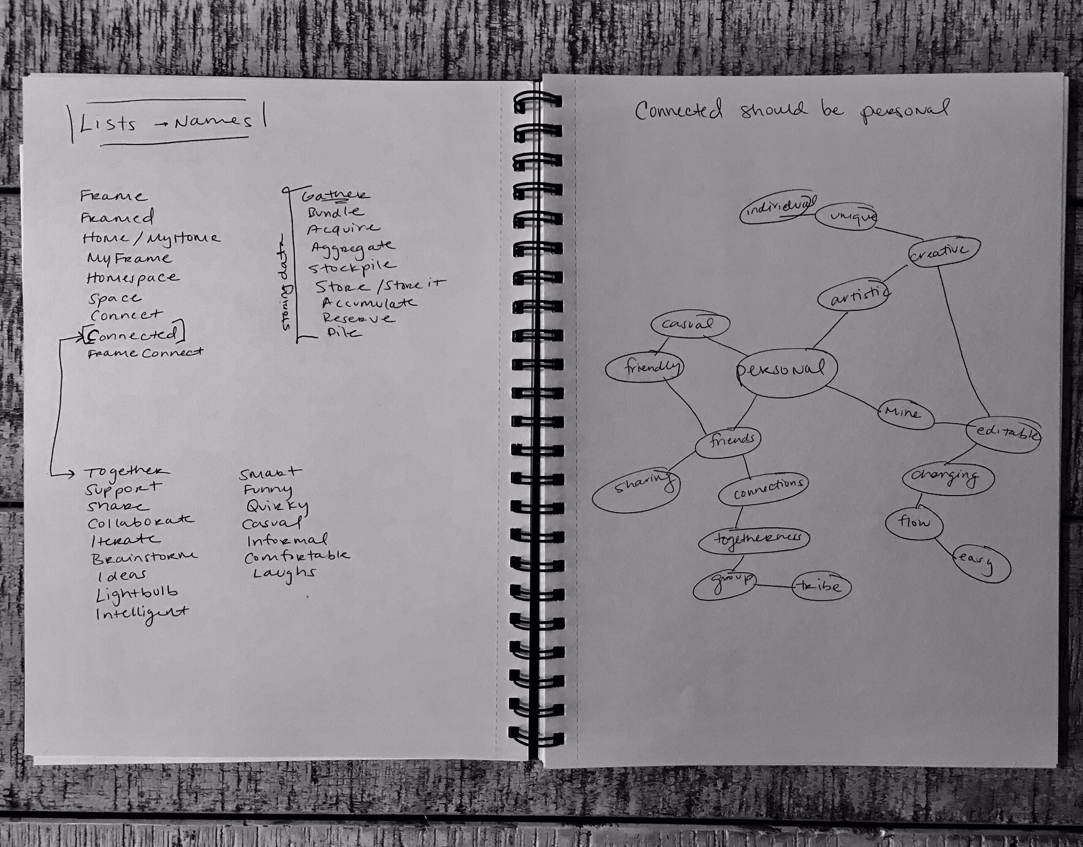 Lists → Names
Frame
Framed
Home / MyHome
MyFrame
Homespace
Space
Connect
[Connected]
Frame Connect
Gather
Bundle
Acquire
Aggregate
Stockpile
Store / Store it
Accumulate
Reserve
Pile
Together
Support
Share
Collaborate
Iterate
Brainstorm
Ideas
Lightbulb
Intelligent
Smart
Funny
Quirky
Casual
Informal
Comfortable
Laughs
Connected should be personal
individual
unique
creative
artistic
casual
friendly
personal
Mine
editable
friends
changing
sharing
connections
flow
togetherness
easy
group
tribe